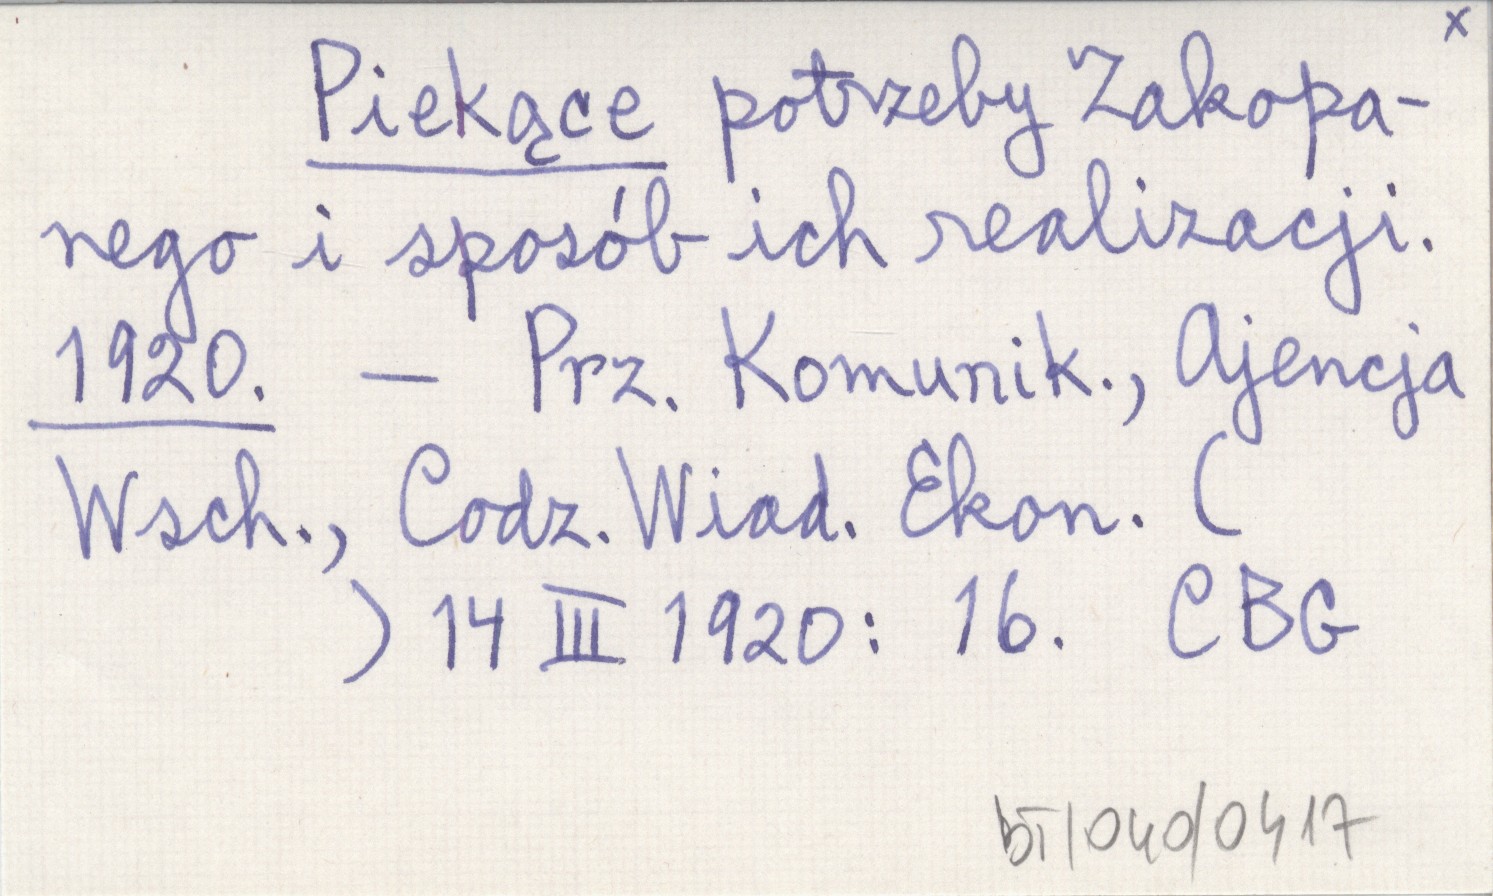 x
Piekące potrzeby Zakopa-
nego i sposób ich realizacji.
1920. — Prz. Komunik., Ajencja
Wsch., Codz. Wiad. Ekon. (
) 14 III 1920: 16. CBG
bT/040/0417